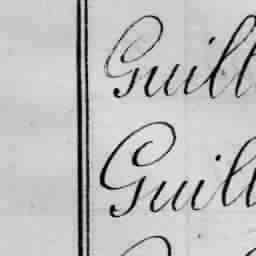 Guill
Guill